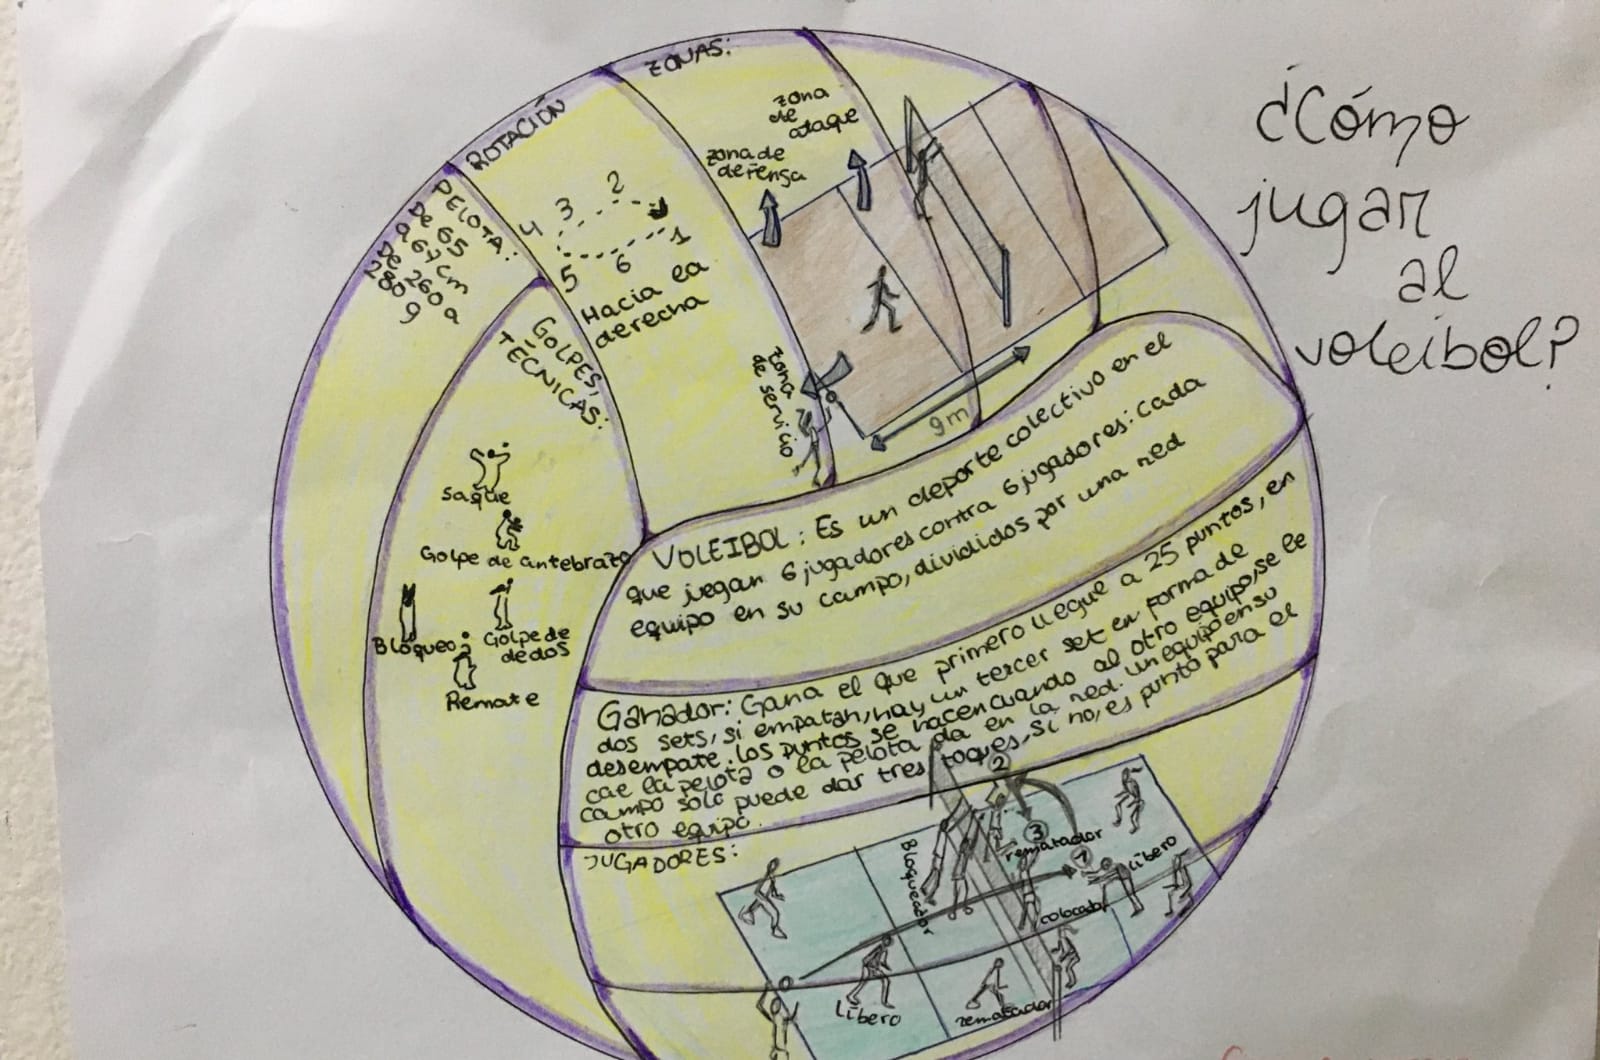 ¿Cómo
jugar
al
voleibol?
PELOTA:
De 65
a 67 cm
De 260 a
280 g
ROTACIÓN
4 3 2
5 6 1
Hacia la
derecha
ZONAS:
zona
de
ataque
zona de
defensa
zona
de servicio
9m
GOLPES,
TÉCNICAS:
saque
Golpe de antebrazo
Bloqueo
Golpe de
dedos
Remate
VOLEIBOL: Es un deporte colectivo en el
que juegan 6 jugadores contra 6 jugadores: Cada
equipo en su campo, divididos por una red
Ganador: Gana el que primero llegue a 25 puntos, en
dos sets, si empatan, hay un tercer set en forma de
desempate. Los puntos se hacen cuando al otro equipo, se le
cae la pelota o la pelota da en la red. un equipo en su
campo solo puede dar tres toques, si no, es punto para el
otro equipo.
JUGADORES:
2
3
rematador
1
Líbero
Bloqueador
colocador
Líbero
rematador